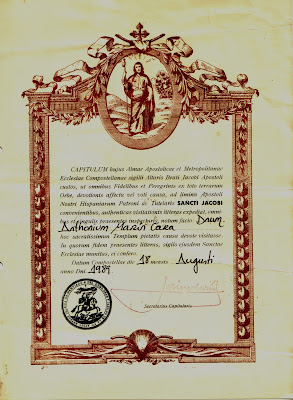 CAPITULUM hujus Almae Apostolicae et Metropolitanae
Ecclesiae Compostellanae sigilli Altaris Beati Jacobi Apostoli
custos, ut omnibus Fidelibus et Peregrinis ex toto terrarum
Orbe, devotionis affectu vel voti causa, ad limina Apostoli
Nostri Hispaniarum Patroni ac Tutelaris SANCTI JACOBI
convenientibus, authenticas visitationis litteras expediat, omni-
bus et singulis praesentes inspecturis, notum facit: Dnum.
Anthonium Marin Cara
hoc sacratissimum Templum pietatis causa devote visitasse
In quorum fidem praesentes litteras, sigillo ejusdem Sanctae
Ecclesiae munitas, ei confero.
Datum Compostellae die 18 mensis Augusti
anno Dni 1989
Secretarius Capitularis